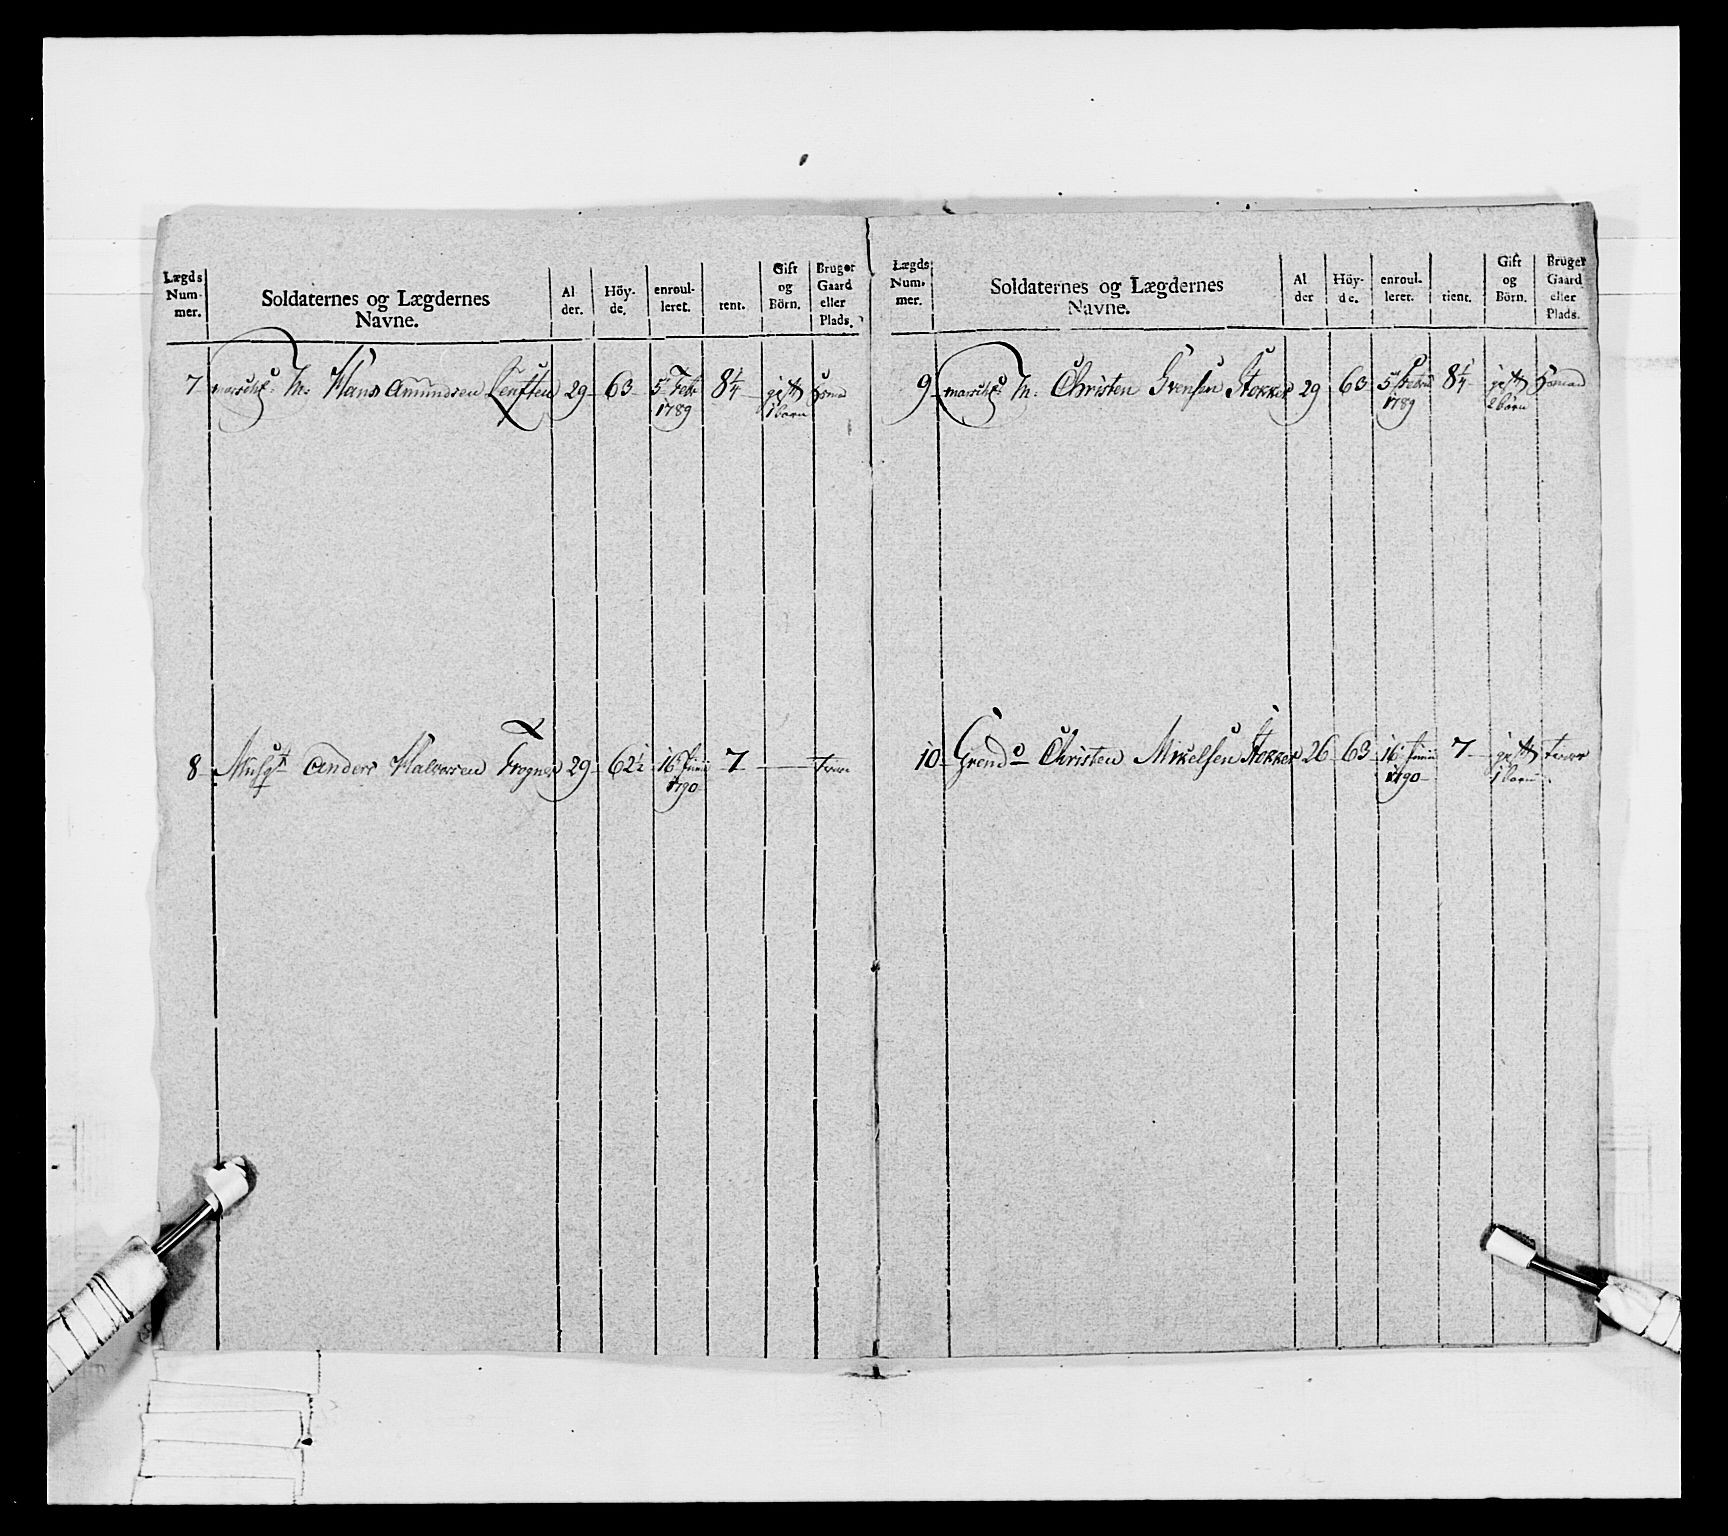 Lægds Num- mer.
Soldaternes og Lægdernes Navne.
Al der.
Höy- de.
enroul- leret.
tient.
Gift og Börn.
Bruger Gaard eller Plads.
7 M. Hans Amundsen 29 63 5 Febr 1789 8 1/4 gift 1 barn
8 Musqt Anders Halvorsen Frogner 29 62 1/2 16 Junii 1790 7
Lægds Num. mer.
Soldaternes og Lægdernes Navne.
Al der
Höy- de.
enroul- leret.
tient.
Gift og Börn.
Bruger Gaard eller Plads.
9 M. Christen Stokker 29 63 5 1789 8 1/4 gift 2 börn
10 Grend Christen Mikelsen Stokker 26 63 16 Junii 1790 7 gift 1 barn